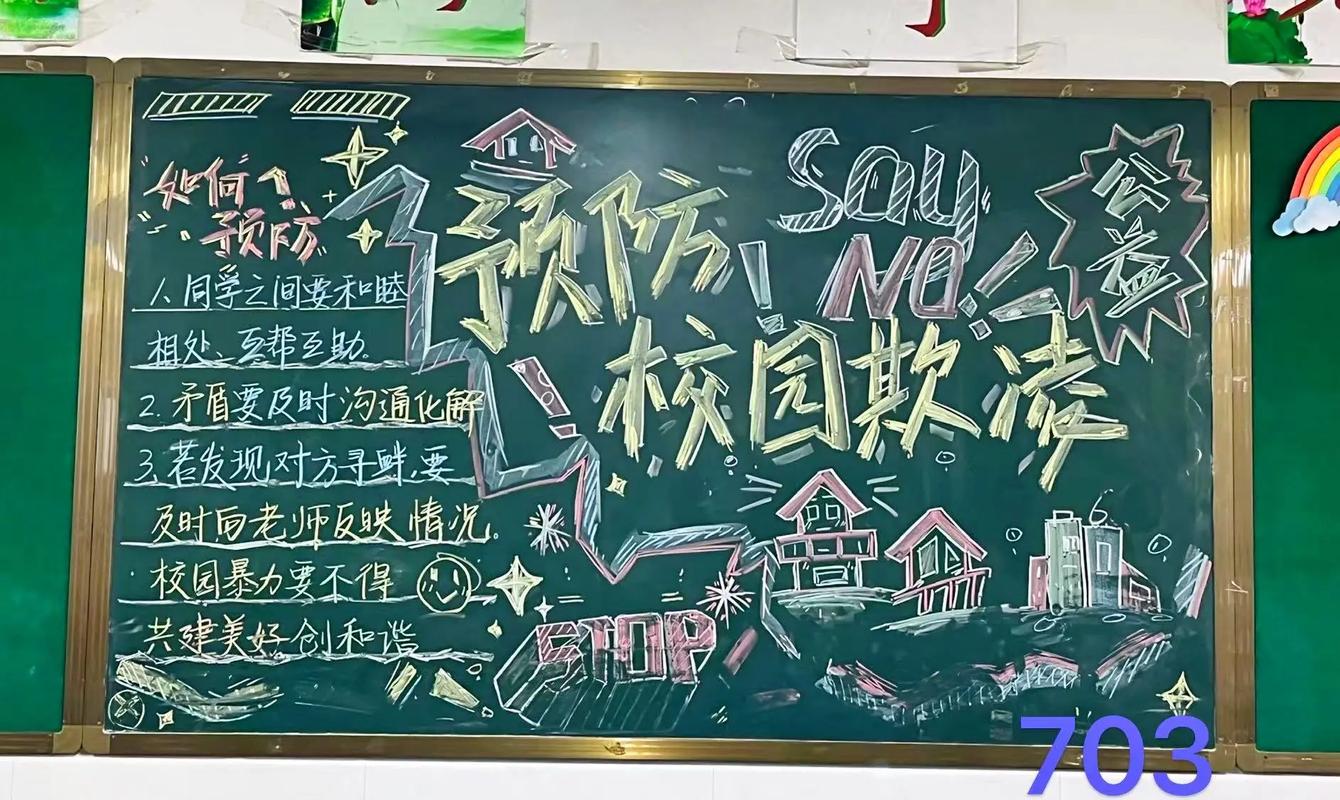 如何
预防
1.同学之间要和睦
相处、互帮互助。
2.矛盾要及时沟通化解
3.若发现对方寻衅,要
及时向老师反映情况。
校园暴力要不得
共建美好创和谐
预防!
校园欺凌
!
Say
NO!
公
益
STOP
703